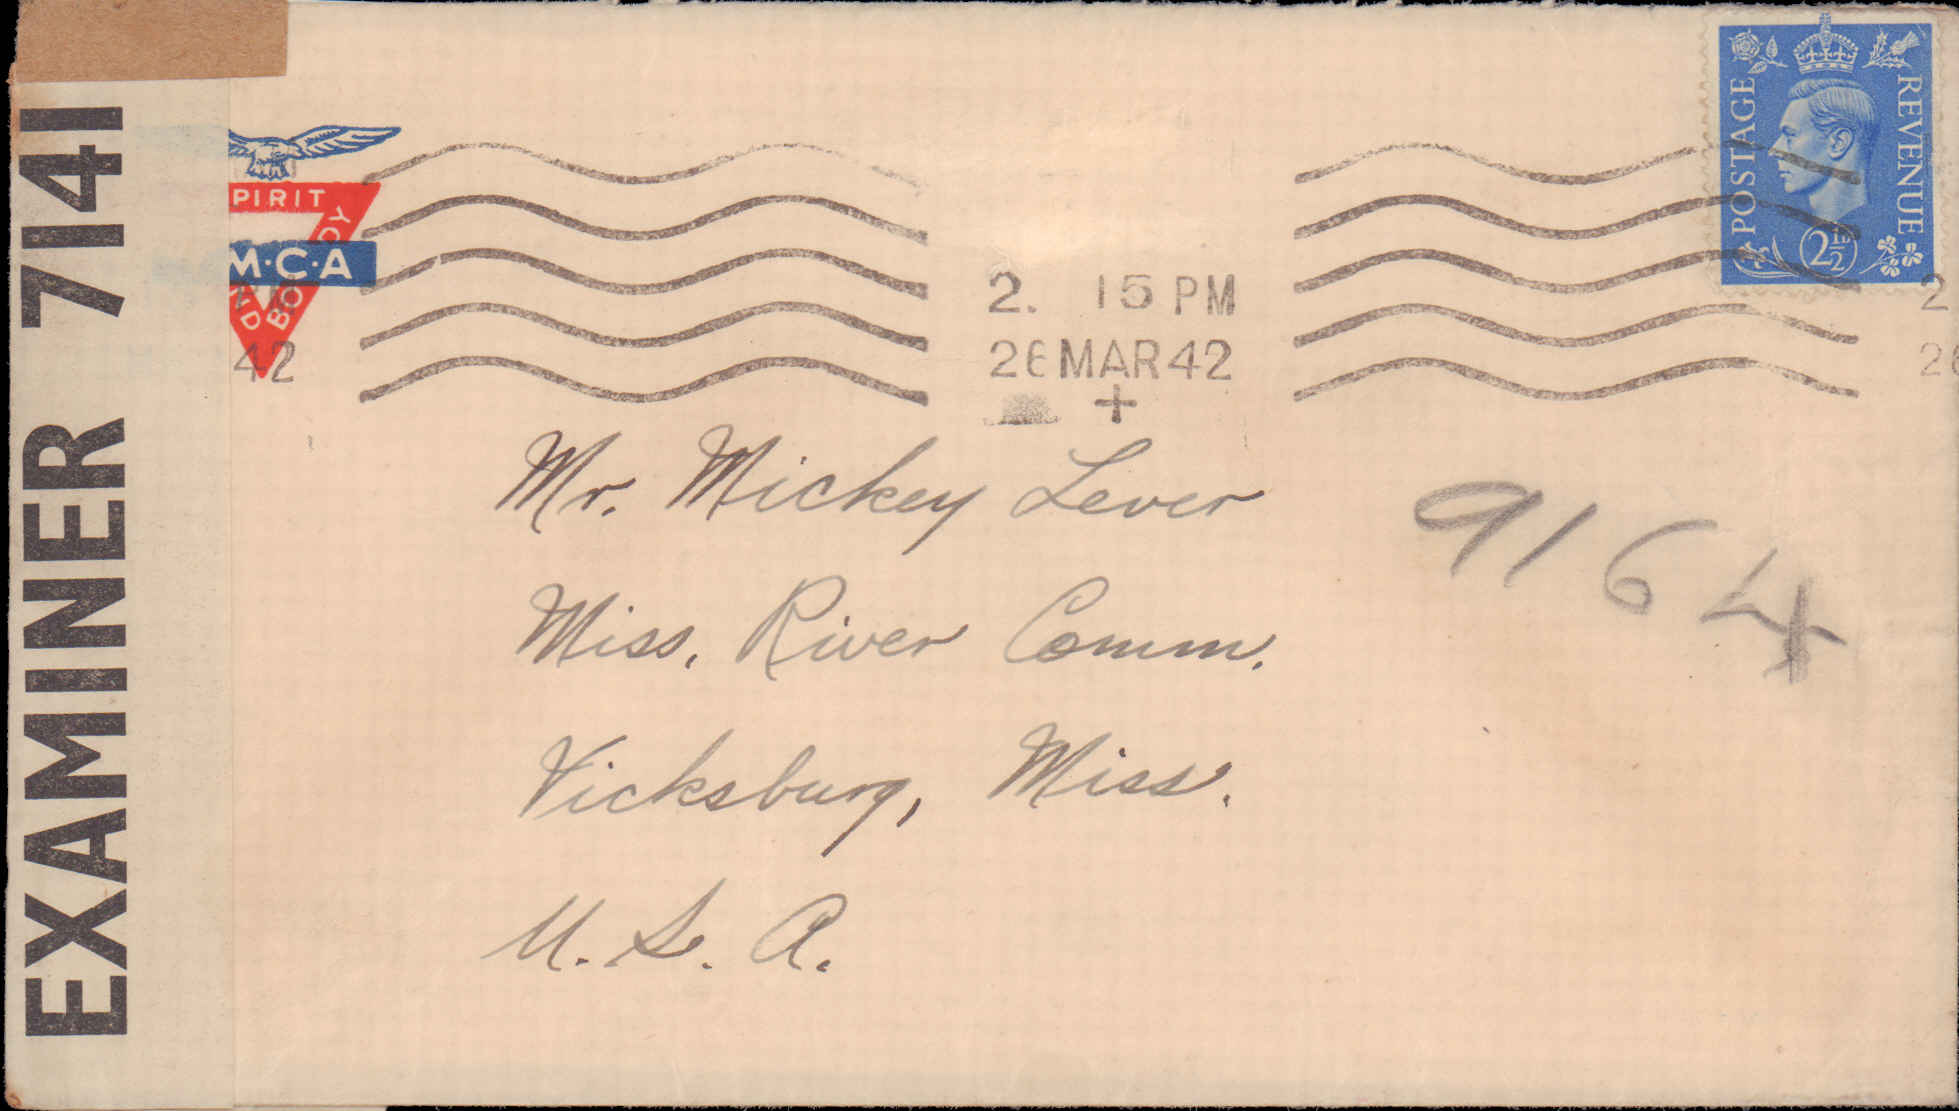 EXAMINER 7141
PIRIT
DY
M·C·A
ND
BO
42
2. 15 PM
26 MAR 42
+
POSTAGE
REVENUE
2½D
2
26
Mr. Mickey Lever
Miss. River Comm.
Vicksburg, Miss.
U. S. A.
9164